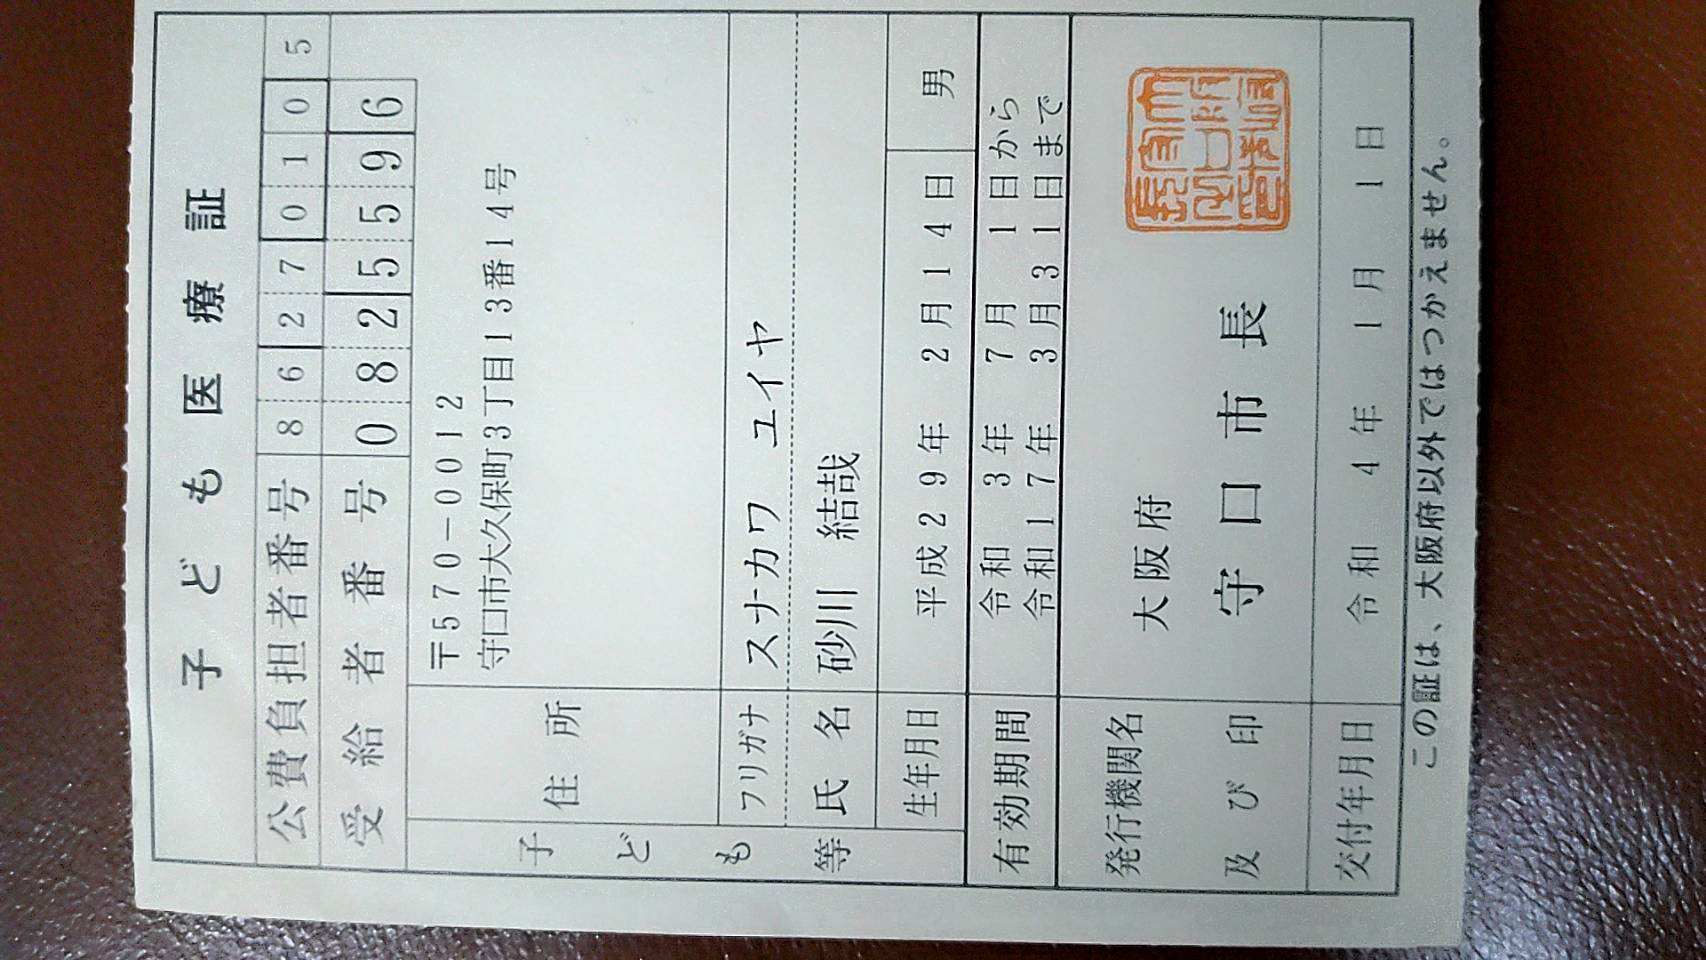 子ども医療証
公費負担者番号 86270105
受給者番号 0825596
子ども等
住所
〒570-0012
守口市大久保町3丁目13番14号
フリガナ スナカワ ユイヤ
氏名 砂川 結哉
生年月日 平成29年 2月14日 男
有効期間 令和 3年 7月 1日から
令和17年 3月31日まで
発行機関名及び印
大阪府
守口市長
交付年月日 令和 4年 1月 1日
この証は、大阪府以外ではつかえません。